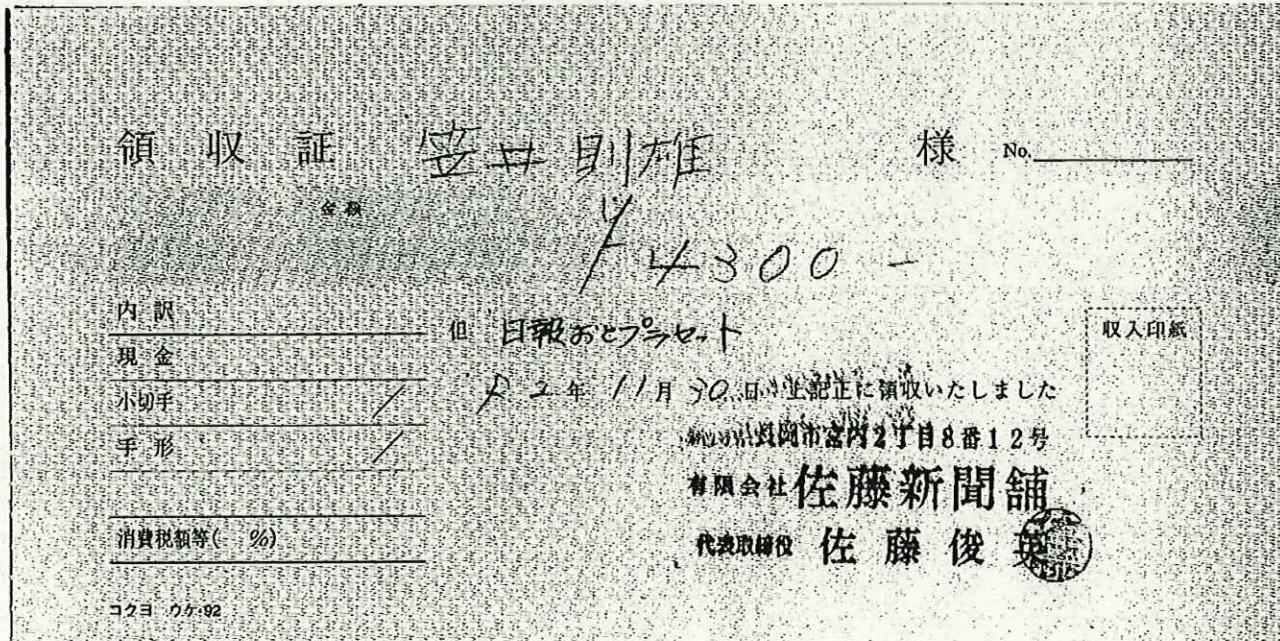 領収証 笠井則雄 様 No.
金額
¥4300-
内訳
現金
小切手
手形
消費税額等( %)
但 日報おとプラセット
R2年11月30日 上記正に領収いたしました
収入印紙
新潟県長岡市宮内2丁目8番12号
有限会社 佐藤新聞舗
代表取締役 佐藤俊英
コクヨ ウケ-92